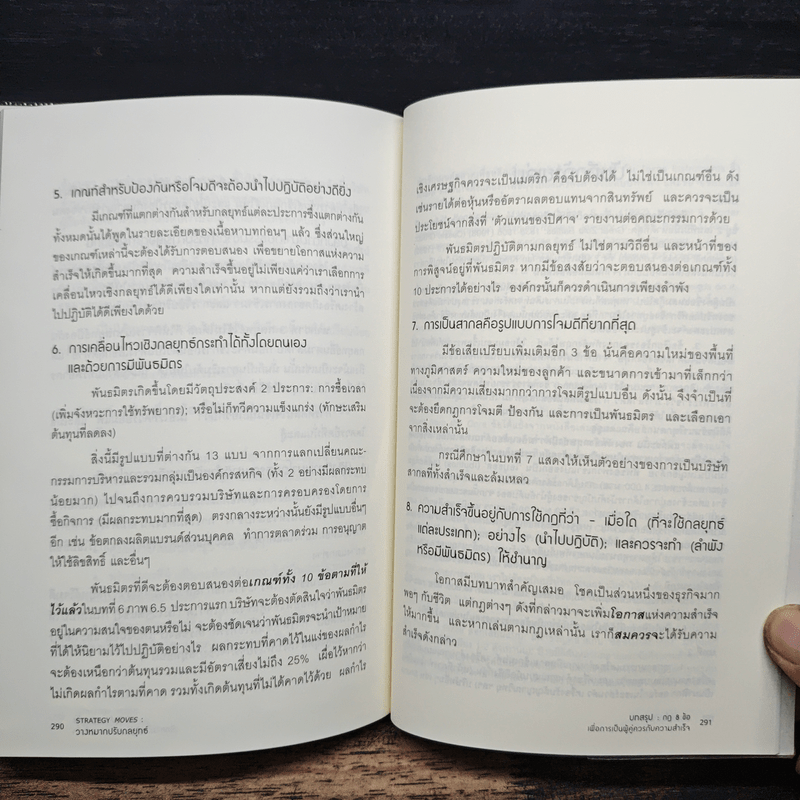 5. เกณฑ์สำหรับป้องกันหรือโจมตีจะต้องนำไปปฏิบัติอย่างดียิ่ง
มีเกณฑ์ที่แตกต่างกันสำหรับกลยุทธ์แต่ละประการซึ่งแตกต่างกัน
ทั้งหมดนั้นได้พูดในรายละเอียดของเนื้อหาบทก่อนๆ แล้ว ซึ่งส่วนใหญ่
ของเกณฑ์เหล่านี้จะต้องได้รับการตอบสนอง เพื่อขยายโอกาสแห่งความ
สำเร็จให้เกิดขึ้นมากที่สุด ความสำเร็จขึ้นอยู่ไม่เพียงแค่ว่าเราเลือกการ
เคลื่อนไหวเชิงกลยุทธ์ได้ดีเพียงใดเท่านั้น หากแต่ยังรวมถึงว่าเรานำ
ไปปฏิบัติได้ดีเพียงใดด้วย
6. การเคลื่อนไหวเชิงกลยุทธ์กระทำได้ทั้งโดยตนเอง
และด้วยการมีพันธมิตร
พันธมิตรเกิดขึ้นโดยมีวัตถุประสงค์ 2 ประการ: การซื้อเวลา
(เพิ่มจังหวะการใช้ทรัพยากร); หรือไม่ก็ทวีความแข็งแกร่ง (ทักษะเสริม
ต้นทุนที่ลดลง)
สิ่งนี้มีรูปแบบที่ต่างกัน 13 แบบ จากการแลกเปลี่ยนคณะ-
กรรมการบริหารและรวมกลุ่มเป็นองค์กรสหกิจ (ทั้ง 2 อย่างมีผลกระทบ
น้อยมาก) ไปจนถึงการควบรวมบริษัทและการครอบครองโดยการ
ซื้อกิจการ (มีผลกระทบมากที่สุด) ตรงกลางระหว่างนั้นยังมีรูปแบบอื่นๆ
อีก เช่น ข้อตกลงผลิตแบรนด์ส่วนบุคคล ทำการตลาดร่วม การอนุญาต
ให้ใช้ลิขสิทธิ์ และอื่นๆ
พันธมิตรที่ดีจะต้องตอบสนองต่อเกณฑ์ทั้ง 10 ข้อตามที่ให้
ไว้แล้วในบทที่ 6 ภาพ 6.5 ประการแรก บริษัทจะต้องตัดสินใจว่าพันธมิตร
อยู่ในความสนใจของตนหรือไม่ จะต้องชัดเจนว่าพันธมิตรจะนำเป้าหมาย
ที่ได้ให้นิยามไว้ไปปฏิบัติอย่างไร ผลกระทบที่คาดไว้ในแง่ของผลกำไร
จะต้องเหนือกว่าต้นทุนรวมและมีอัตราเสี่ยงไม่ถึง 25% เผื่อไว้หากว่า
ไม่เกิดผลกำไรตามที่คาด รวมทั้งเกิดต้นทุนที่ไม่ได้คาดไว้ด้วย ผลกำไร
290 STRATEGY MOVES :
วางหมากปรับกลยุทธ์
เชิงเศรษฐกิจควรจะเป็นเมตริก คือจับต้องได้ ไม่ใช่เป็นเกณฑ์อื่น ดัง
เช่นรายได้ต่อหุ้นหรืออัตราผลตอบแทนจากสินทรัพย์ และควรจะเป็น
ประโยชน์จากสิ่งที่ 'ตัวแทนของปิศาจ' รายงานต่อคณะกรรมการด้วย
พันธมิตรปฏิบัติตามกลยุทธ์ ไม่ใช่ตามวิถีอื่น และหน้าที่ของ
การพิสูจน์อยู่ที่พันธมิตร หากมีข้อสงสัยว่าจะตอบสนองต่อเกณฑ์ทั้ง
10 ประการได้อย่างไร องค์กรนั้นก็ควรดำเนินการเพียงลำพัง
7. การเป็นสากลคือรูปแบบการโจมตีที่ยากที่สุด
มีข้อเสียเปรียบเพิ่มเติมอีก 3 ข้อ นั่นคือความใหม่ของพื้นที่
ทางภูมิศาสตร์ ความใหม่ของลูกค้า และขนาดการเข้ามาที่เล็กกว่า
เนื่องจากมีความเสี่ยงมากกว่าการโจมตีรูปแบบอื่น ดังนั้น จึงจำเป็นที่
จะต้องยึดกฎการโจมตี ป้องกัน และการเป็นพันธมิตร และเลือกเอา
จากสิ่งเหล่านั้น
กรณีศึกษาในบทที่ 7 แสดงให้เห็นตัวอย่างของการเป็นบริษัท
สากลที่ทั้งสำเร็จและล้มเหลว
8. ความสำเร็จขึ้นอยู่กับการใช้กฎที่ว่า – เมื่อใด (ที่จะใช้กลยุทธ์
แต่ละประเภท); อย่างไร (นำไปปฏิบัติ); และควรจะทำ (ลำพัง
หรือมีพันธมิตร) ให้ชำนาญ
โอกาสมีบทบาทสำคัญเสมอ โชคเป็นส่วนหนึ่งของธุรกิจมาก
พอๆ กับชีวิต แต่กฎต่างๆ ดังที่กล่าวมาจะเพิ่มโอกาสแห่งความสำเร็จ
ให้มากขึ้น และหากเล่นตามกฎเหล่านั้น เราก็สมควรจะได้รับความ
สำเร็จดังกล่าว
บทสรุป : กฎ 8 ข้อ 291
เพื่อการเป็นผู้คู่ควรกับความสำเร็จ